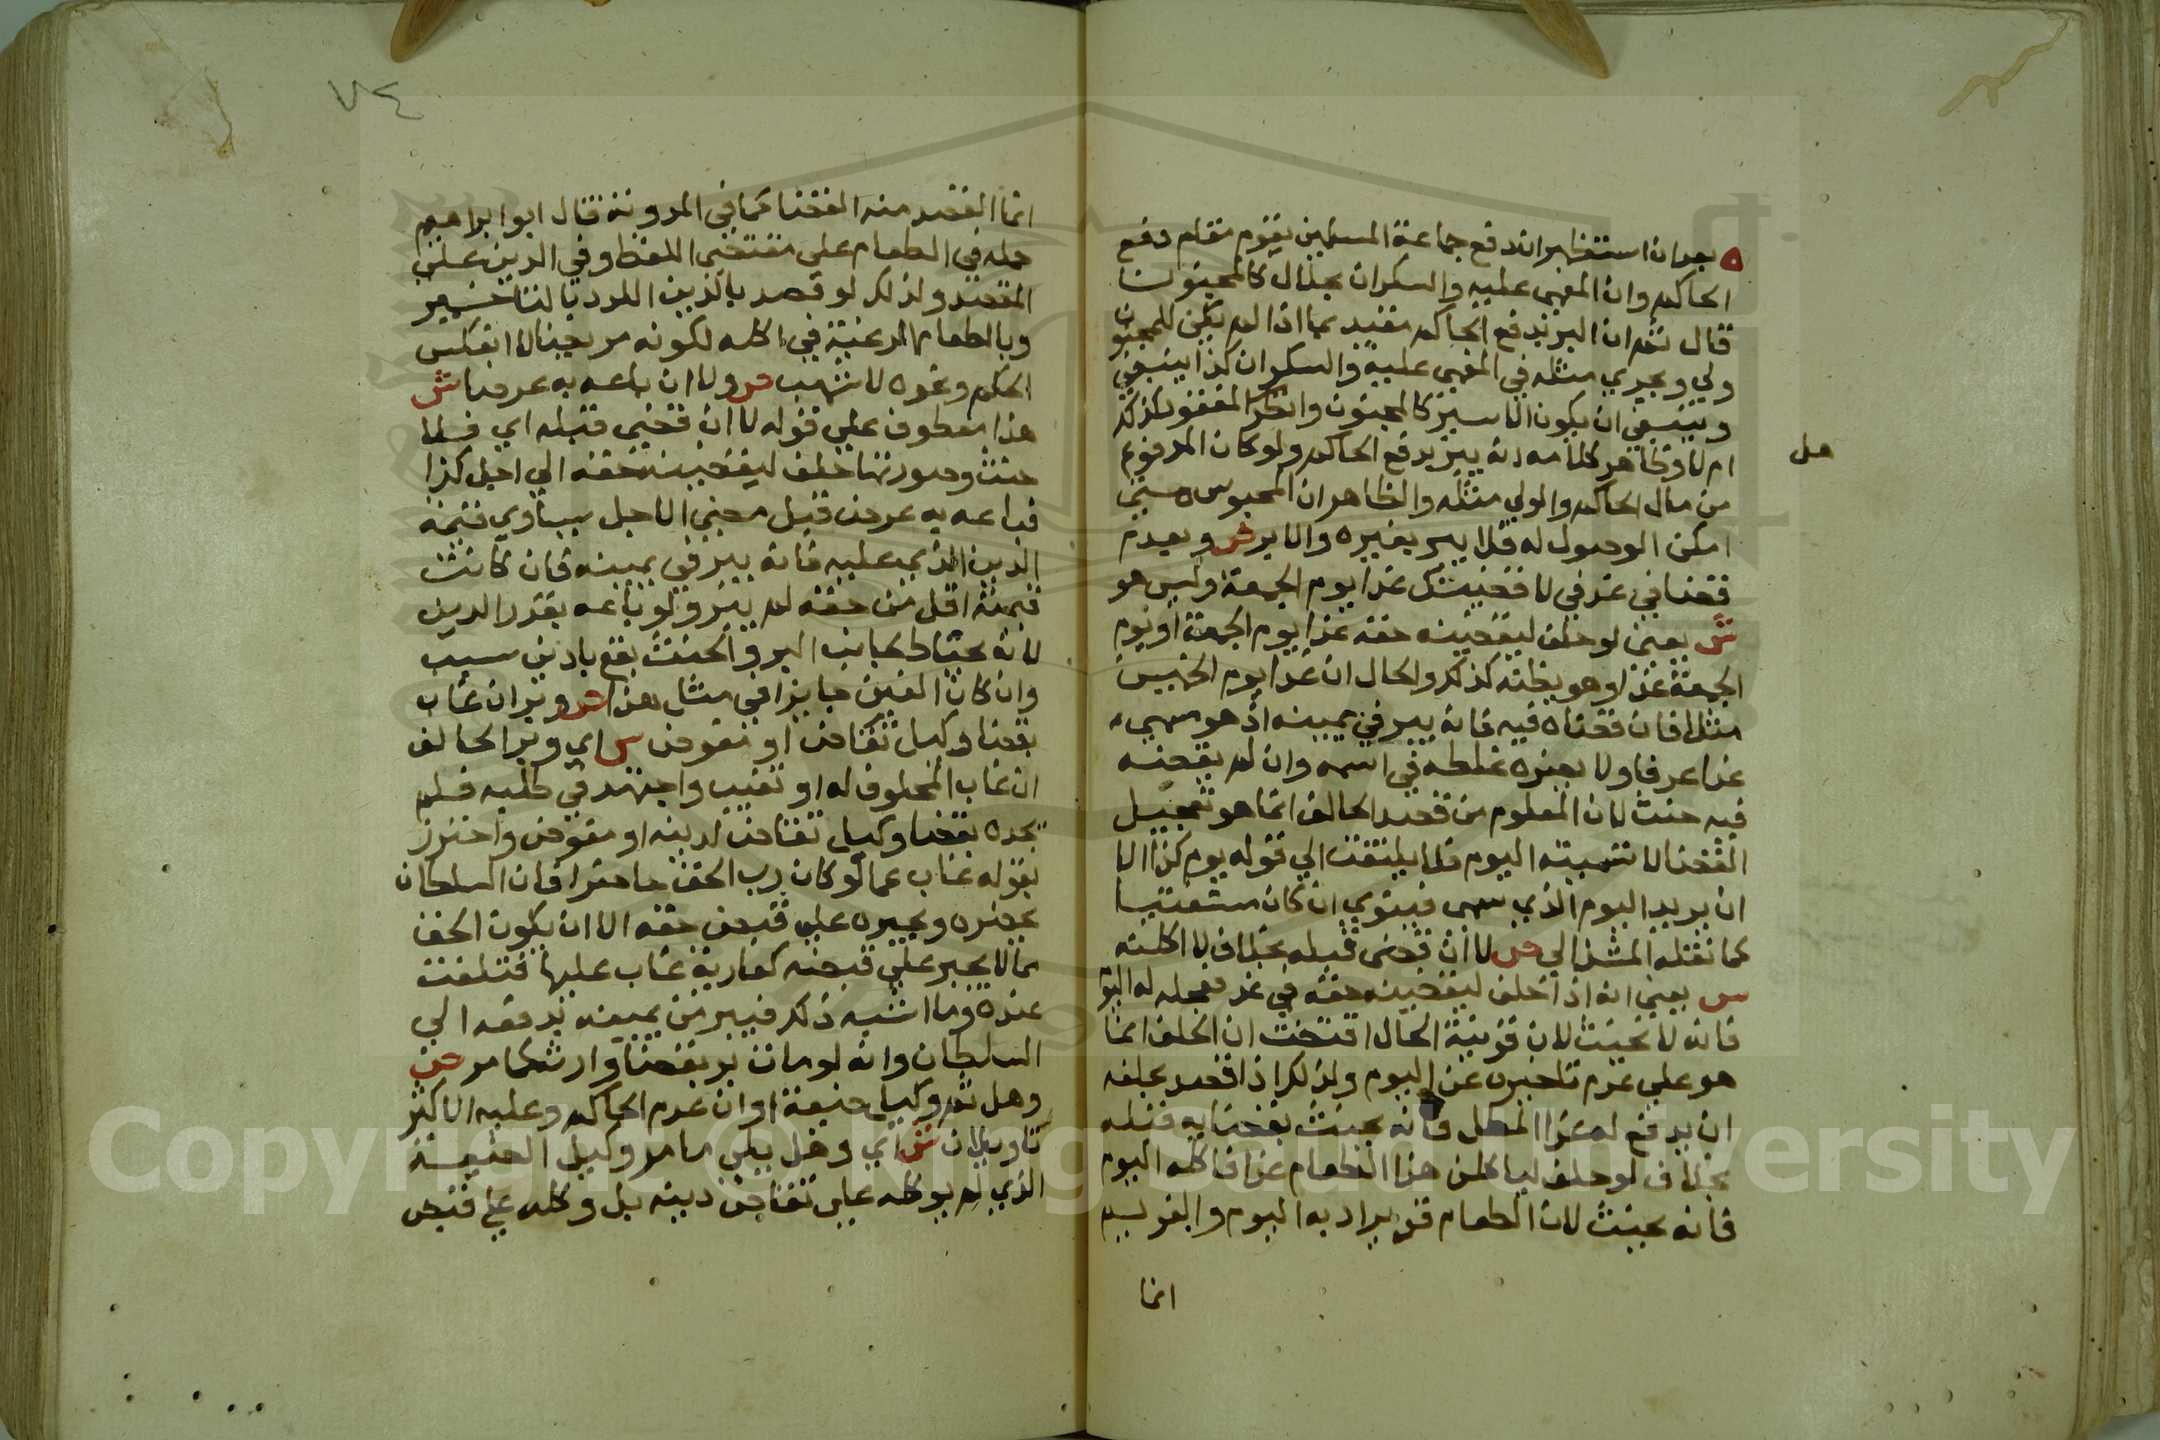 ه بعد ان استظهر ان دفع جماعة المسلمين يقوم مقام دفع
الحاكم وان المغمى عليه والسكران بحلال كالمجنون
قال ثم ان البر بدفع الحاكم مقيد بما اذا لم يكن للمجنون
ولي ويجري مثله في المغمى عليه والسكران كذا ينبغي
وينبغي ان يكون الاسير كالمجنون وانظر المفقود كذلك
ام لا وظاهر كلامه انه يبر بدفع الحاكم ولو كان المدفوع
هل
من مال الحاكم والولي مثله والظاهر ان المحبوس متى
امكن الوصول له فلا يبر بغيره والا بر ص وبعدم
قضا في غد في لاقضينك غدا يوم الجمعة وليس هو
ش يعني لو حلف ليقضينه حقه غدا يوم الجمعة او يوم
الجمعة غدا وهو يظنه كذلك والحال ان غدا يوم الخميس
مثلا فان قضاه فيه فانه يبر في يمينه اذ هو مسمى
غدا عرفا ولا يضره غلطه في اسمه وان لم يقضه
فيه حنث لان المعلوم من قصد الحالف انما هو تعجيل
القضا لا تسمية اليوم فلا يلتفت الي قوله يوم كذا الا
ان يريد اليوم الذي سمى فينوي ان كان مستفتيا
كما نقله المشذالي ص لا ان قضى قبله بخلاف لا اكلنه
ش يعني انه اذا حلف ليقضينه حقه في غد فعجله له اليوم
فانه لا يحنث لان قرينة الحال اقتضت ان الحلف انما
هو على عدم تاخيره عن اليوم ولذلك اذا قصد بحلفه
ان يدفع له غدا المطل فانه يحنث بقضايه قبله
بخلاف لو حلف لياكلن هذا الطعام غدا فاكله اليوم
فانه يحنث لان الطعام قد يراد به اليوم والغريم
انما
٧٤
انما القصد منه القضا كما في المدونة قال ابو ابراهيم
حمله في الطعام على مقتضى اللفظ وفي الدين على
المقصد ولذلك لو قصد بالدين اللدد بالتاخير
وبالطعام الرغبة في اكله لكونه مريضا لانعكس
الحكم ونحوه لاشهب ص ولا ان باعه به عرضا ش
هذا معطوف على قوله لا ان قضى قبله اي فلا
حنث وصورتها حلف ليقضينه حقه الي اجل كذا
فباعه به عرضا قبل مضي الاجل يساوي قيمة
الدين الذي عليه فانه يبر في يمينه فان كانت
قيمته اقل من حقه لم يبر ولو باعه بقدر الدين
لانه يحتاط لجانب البر والحنث يقع بادنى سبب
وان كان الغبن جايزا في مثل هذا ص وبر ان غاب
بقضا وكيل تقاض او مفوض ش اي وبر الحالف
ان غاب المحلوف له او تغيب واجتهد في طلبه فلم
يجده بقضا وكيل تقاض لدينه او مفوض واحترز
بقوله غاب عما لو كان رب الحق حاضرا فان السلطان
يحضره ويجبره على قبض حقه الا ان يكون الحق
مما لا يجبر على قبضه كعارية غاب عليها فتلفت
عنده وما اشبه ذلك فيبر من يمينه بدفعه الي
السلطان وانه لو مات بر بقضا وارثه كما مر ص
وهل ثم وكيل ضيعة او ان عدم الحاكم وعليه الاكثر
تاويلان ش اي وهل يلي ما مر وكيل الضيعة
الذي لم يوكله على تقاضي دينه بل وكله على قبض